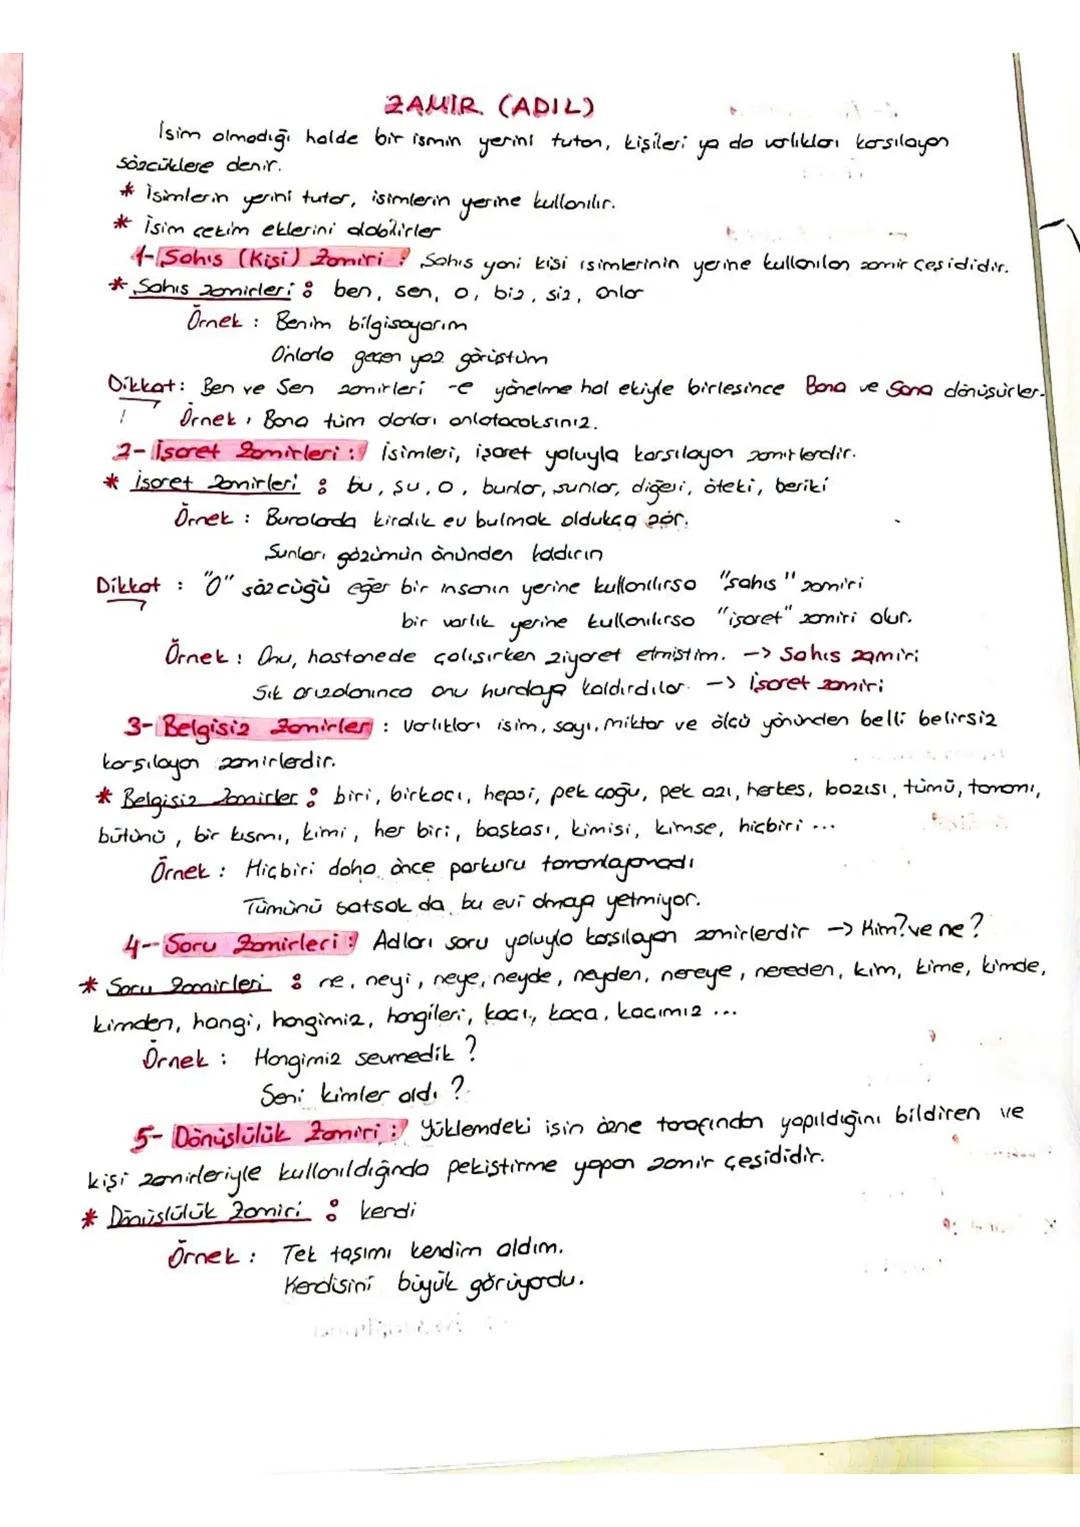 ZAMİR (ADIL)
İsim olmadığı halde bir ismin yerini tutan, kişileri ya da varlıkları karşılayan
sözcüklere denir.
* İsimlerin yerini tutar, isimlerin yerine kullanılır.
* İsim çekim eklerini alabilirler
1- Şahıs (Kişi) Zamiri : Şahıs yani kişi isimlerinin yerine kullanılan zamir çeşididir.
* Şahıs zamirleri : ben, sen, o, biz, siz, onlar
Örnek : Benim bilgisayarım
Onlarla geçen yaz görüştüm
Dikkat : Ben ve Sen zamirleri -e yönelme hal ekiyle birleşince Bana ve Sana dönüşürler.
! Örnek : Bana tüm dunları anlatacaksınız.
2- İşaret Zamirleri : İsimleri, işaret yoluyla karşılayan zamirlerdir.
* İşaret Zamirleri : bu, şu, o, bunlar, şunlar, diğeri, öteki, beriki
Örnek : Buralarda kirdlik ev bulmak oldukça zor.
Şunları gözümün önünden kaldırın
Dikkat : "O" sözcüğü eğer bir insanın yerine kullanılırsa "şahıs" zamiri
bir varlık yerine kullanılırsa "işaret" zamiri olur.
Örnek : Onu, hastanede çalışırken ziyaret etmiştim. -> Şahıs zamiri
Sık arızalanınca onu hurdaya kaldırdılar. -> İşaret zamiri
3- Belgisiz Zamirler : Varlıkları isim, sayı, miktar ve ölçü yönünden belli belirsiz
karşılayan zamirlerdir.
* Belgisiz Zamirler : biri, birkaçı, hepsi, pek çoğu, pek azı, herkes, bazısı, tümü, tamamı,
bütünü, bir kısmı, kimi, her biri, başkası, kimisi, kimse, hiçbiri ...
Örnek : Hiçbiri daha önce parkuru tamamlayamadı
Tümünü satsak da bu evi almaya yetmiyor.
4- Soru Zamirleri : Adları soru yoluyla karşılayan zamirlerdir -> Kim? ve ne?
* Soru Zamirleri : ne, neyi, neye, neyde, neyden, nereye, nereden, kim, kime, kimde,
kimden, hangi, hangimiz, hangileri, kaçı, kaça, kaçımız ...
Örnek : Hangimiz sevmedik ?
Seni kimler aldı ?
5- Dönüşlülük Zamiri : Yüklemdeki işin özne tarafından yapıldığını bildiren ve
kişi zamirleriyle kullanıldığında pekiştirme yapan zamir çeşididir.
* Dönüşlülük Zamiri : kendi
Örnek : Tek taşımı kendim aldım.
Kendisini büyük görüyordu.